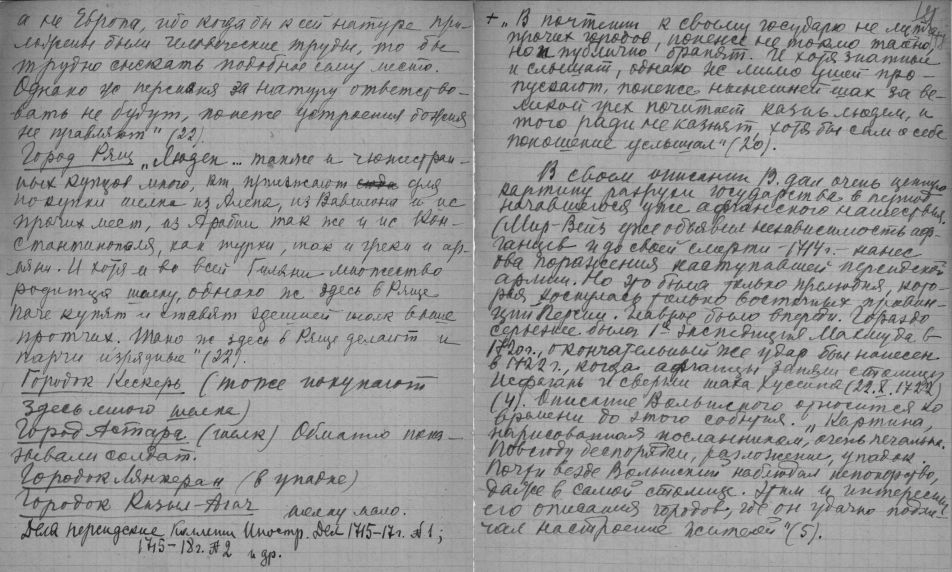 а не Европа, ибо когда бы к сей натуре при-
ложены были человеческие труды, то бы
трудно сыскать подобное сему место.
Однако ж персияня за натуру ответство-
вать не будут, понеже устроения божия
не правляют" (22)
Город Рящ „Людей ... также и чюжестран-
ных купцов много, кт. приезжают для
покупки шелка из Алепа, из Вавилона и ис
прочих мест, из Арабии так же и ис Кон-
стантинополя, как турки, так и греки и ар-
мяни. И хотя и во всей Гиляни множество
родитца шолку, однако ж здесь в Ряще
паче купят и ставят здешней шолк выше
протчих. Тако ж здесь в Ряще делают и
парчи изрядные" (22).
Городок Кескерь (тоже покупают
здесь много шолка)
Город Астара (шолк) Обманно пока-
зывали солдат.
Городок Лянкеран (в упадке)
Городок Кизыл-Агач шелку мало.
Дела персидские Коллегии Иностр. Дел 1715-17г. №1;
1715-18г. №2 и др.
+ „В почтении к своему государю не
прочих городов, понеже не токмо тайно,
но и публично бранят. И хотя знатныи
и слышат, однако ж мимо ушей про-
пускают, понеже нынешней шах за ве-
ликой грех почитает казнь людем, и
того ради не казнят, хотя бы сам о себе
поношение услышал" (20).
В своем описании В. дал очень ценную
картину разрухи государства в период
начавшегося уже афганского нашествия.
(Мир-Вейз уже объявил независимость аф-
ганцев и до своей смерти – 1717г. – нанес
два поражения наступавшей персидской
армии. Но это была только прелюдия, кото-
рая коснулась только восточных провин-
ций Персии. Главное было впереди. Гораздо
серьезнее была 1ая экспедиция Махмуда в
1720г., окончательный же удар был нанесен
в 1722г., когда афганцы заняли столицу
Исфагань и свергли шаха Хусейна (22.X.1722)
(4). Описание Волынского относится ко
времени до этого события. „Картина,
нарисованная посланником, очень печальна.
Повсюду беспорядки, разложение, упадок.
Почти везде Волынский наблюдал непокорство,
даже в самой столице. Этим и интересны
его описания городов, где он удачно подме-
чал настроение жителей" (5).